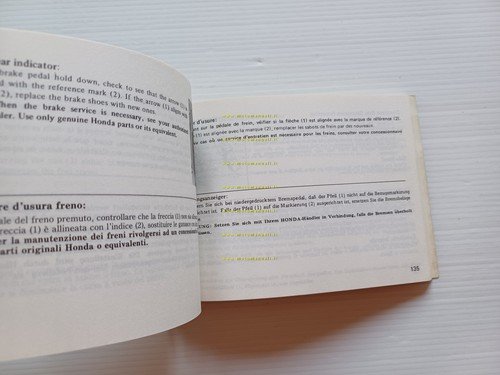 ar indicator:
brake pedal hold down, check to see that the arrow (1) is
d with the reference mark (2). If the arrow (1) aligns with
(2), replace the brake shoes with new ones.
hen the brake service is necessary, see your authorized
ler. Use only genuine Honda parts or its equivalent.
re d'usura freno:
ale del freno premuto, controllare che la freccia (1) non
reccia (1) è allineata con l'indice (2), sostituire le ganasce
er la manutenzione dei freni rivolgersi ad un concessionario
arti originali Honda o equivalenti.
www.motomanuali.it
d'usure:
nt sur la pédale de frein, vérifier si la flèche (1) est alignée avec la marque de référence (2).
(1) est alignée avec la marque (2), remplacer les sabots de frein par des nouveaux.
cas où un service d'entretien est nécessaire pour les freins, consulter votre concessionnaire
www.motomanuali.it
www.motomanuali.it
www.motomanuali.it
ngsanzeiger:
rn Sie sich bei niedergedrücktem Bremspedal, daß der Pfeil (1) nicht auf die Bezugsmarkierung
tet ist. Falls der Pfeil (1) auf die Markierung (2) ausgerichtet ist, ersetzen Sie die Bremsbeläge
NG: Setzen Sie sich mit Ihrem HONDA-Händler in Verbindung, falls die Bremsen überholt
üssen.
www.motomanuali.it
135